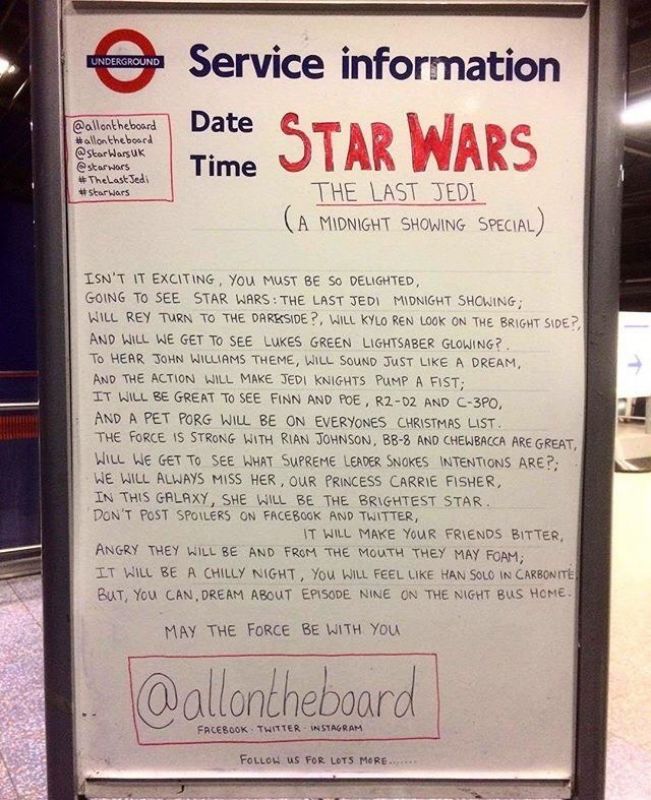 UNDERGROUND
Service information
Date
Time
@allontheboard
#allontheboard
@StarWarsUK
@starwars
#TheLastJedi
#starwars
STAR WARS
THE LAST JEDI
(A MIDNIGHT SHOWING SPECIAL)
ISN'T IT EXCITING, YOU MUST BE SO DELIGHTED,
GOING TO SEE STAR WARS: THE LAST JEDI MIDNIGHT SHOWING;
WILL REY TURN TO THE DARKSIDE?, WILL KYLO REN LOOK ON THE BRIGHT SIDE?,
AND WILL WE GET TO SEE LUKES GREEN LIGHTSABER GLOWING?.
TO HEAR JOHN WILLIAMS THEME, WILL SOUND JUST LIKE A DREAM,
AND THE ACTION WILL MAKE JEDI KNIGHTS PUMP A FIST;
IT WILL BE GREAT TO SEE FINN AND POE, R2-D2 AND C-3PO,
AND A PET PORG WILL BE ON EVERYONES CHRISTMAS LIST.
THE FORCE IS STRONG WITH RIAN JOHNSON, BB-8 AND CHEWBACCA ARE GREAT,
WILL WE GET TO SEE WHAT SUPREME LEADER SNOKES INTENTIONS ARE?;
WE WILL ALWAYS MISS HER, OUR PRINCESS CARRIE FISHER,
IN THIS GALAXY, SHE WILL BE THE BRIGHTEST STAR.
DON'T POST SPOILERS ON FACEBOOK AND TWITTER,
IT WILL MAKE YOUR FRIENDS BITTER,
ANGRY THEY WILL BE AND FROM THE MOUTH THEY MAY FOAM;
IT WILL BE A CHILLY NIGHT, YOU WILL FEEL LIKE HAN SOLO IN CARBONITE,
BUT, YOU CAN, DREAM ABOUT EPISODE NINE ON THE NIGHT BUS HOME.
MAY THE FORCE BE WITH YOU
@allontheboard
FACEBOOK · TWITTER · INSTAGRAM
FOLLOW US FOR LOTS MORE.......